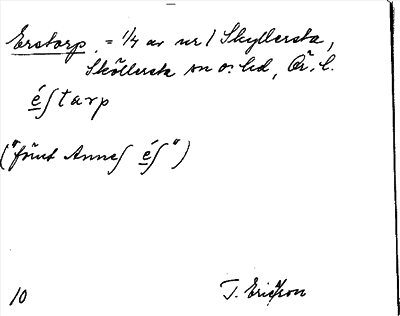 Erstorp, = 1/4 av nr 1 Skyllersta,
Sköllersta sn o. hd, Ör. l.
é∫tarp
("fönt Anne∫ é∫")
10 T. Ericsson